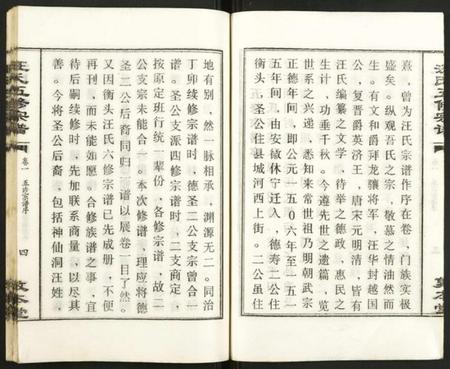 熹，曾为汪氏宗谱作序在卷，门族实极
盛矣。纵观吾氏之宗，敬慕之情油然而
生。有文和爵拜龙骧将军，汪华封越国
公，复晋爵英济王，唐宋元明清，皆有
汪氏编纂之文学，待举之德政，惠民之
生计，功垂千秋。今遵先世之遗篇，览
世系之兴递，悉知来常世祖乃明朝武宗
正德年间，即公元一五〇六年至一五一
〇年间，由安徽休宁迁入，德寿二公住
衡头，圣公住县城河西上街。二公虽住
地有别，然一脉相承，渊源无二。同治
丁卯续修宗谱时，德圣二公支宗曾合一
谱。圣公支派四修宗谱时，二支商定，
按原定班行统一辈份，各修宗谱，故二
公支宗未能合一。本次修谱，理应将德
圣二公后裔同归一谱以展卷一目了然。
又因衡头汪氏六修宗谱已先成册，不便
再刊，而未能如愿。合修族谱之事，宜
待后嗣续修时，先加联系商量，以尽其
善。今将圣公后裔，包括神仙洞汪姓，
汪氏五修宗谱
卷一
五修宗谱序
四
敦本堂